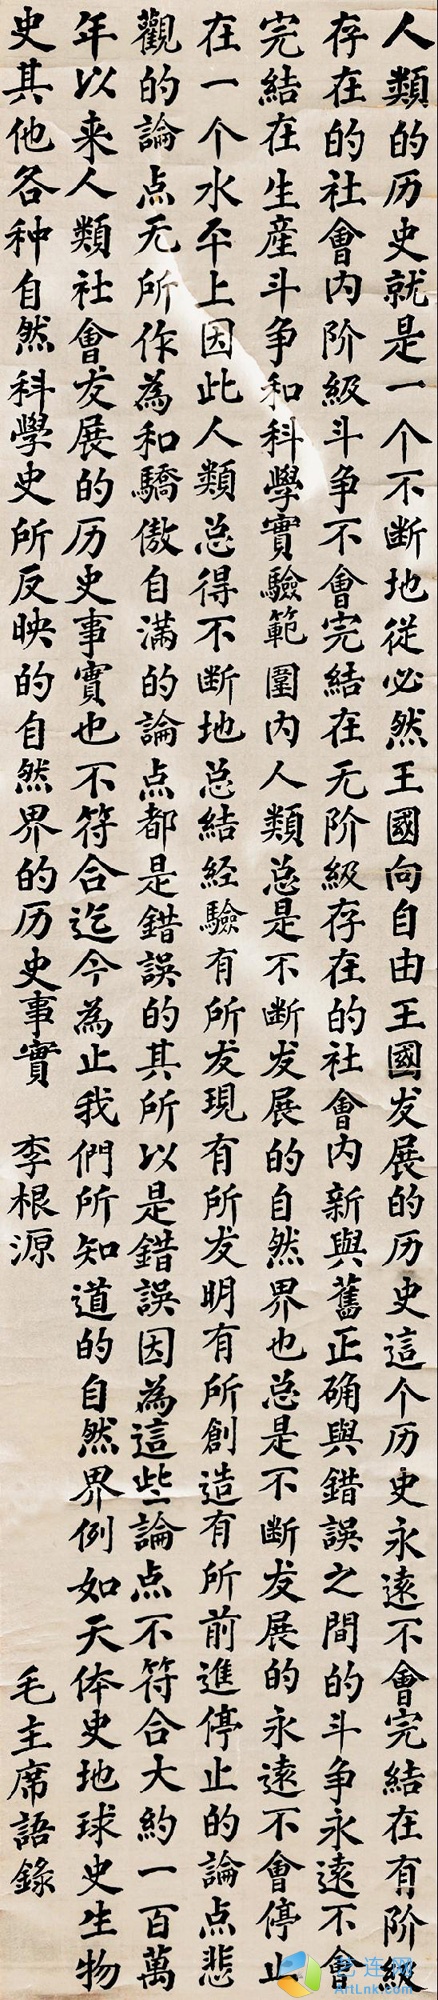 人類的历史就是一个不断地從必然王國向自由王國发展的历史這个历史永遠不會完結在有阶級
存在的社會内阶級斗争不會完結在无阶級存在的社會内新與舊正确與錯誤之間的斗争永遠不會
完結在生産斗争和科學實驗範圍内人類总是不断发展的自然界也总是不断发展的永遠不會停止
在一个水平上因此人類总得不断地总結经驗有所发現有所发明有所創造有所前進停止的論点悲
觀的論点无所作為和驕傲自满的論点都是錯誤的其所以是錯誤因為這些論点不符合大約一百萬
年以来人類社會发展的历史事實也不符合迄今為止我們所知道的自然界例如天体史地球史生物
史其他各种自然科學史所反映的自然界的历史事實 李根源 毛主席語錄
艺连网
ArtLnk.Com